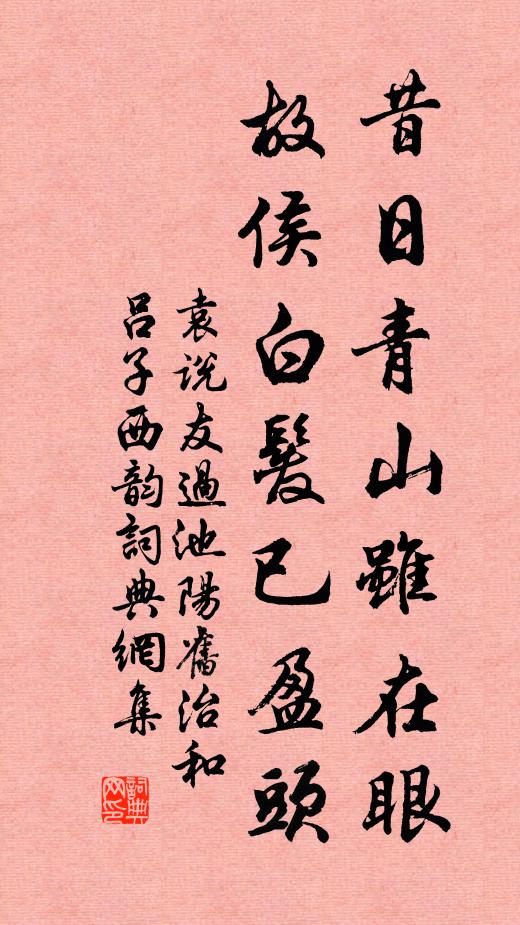 昔日青山雖在眼
故侯白髮已盈頭
袁說友過池陽舊治和
呂子西韵詞典網集
詞典网印